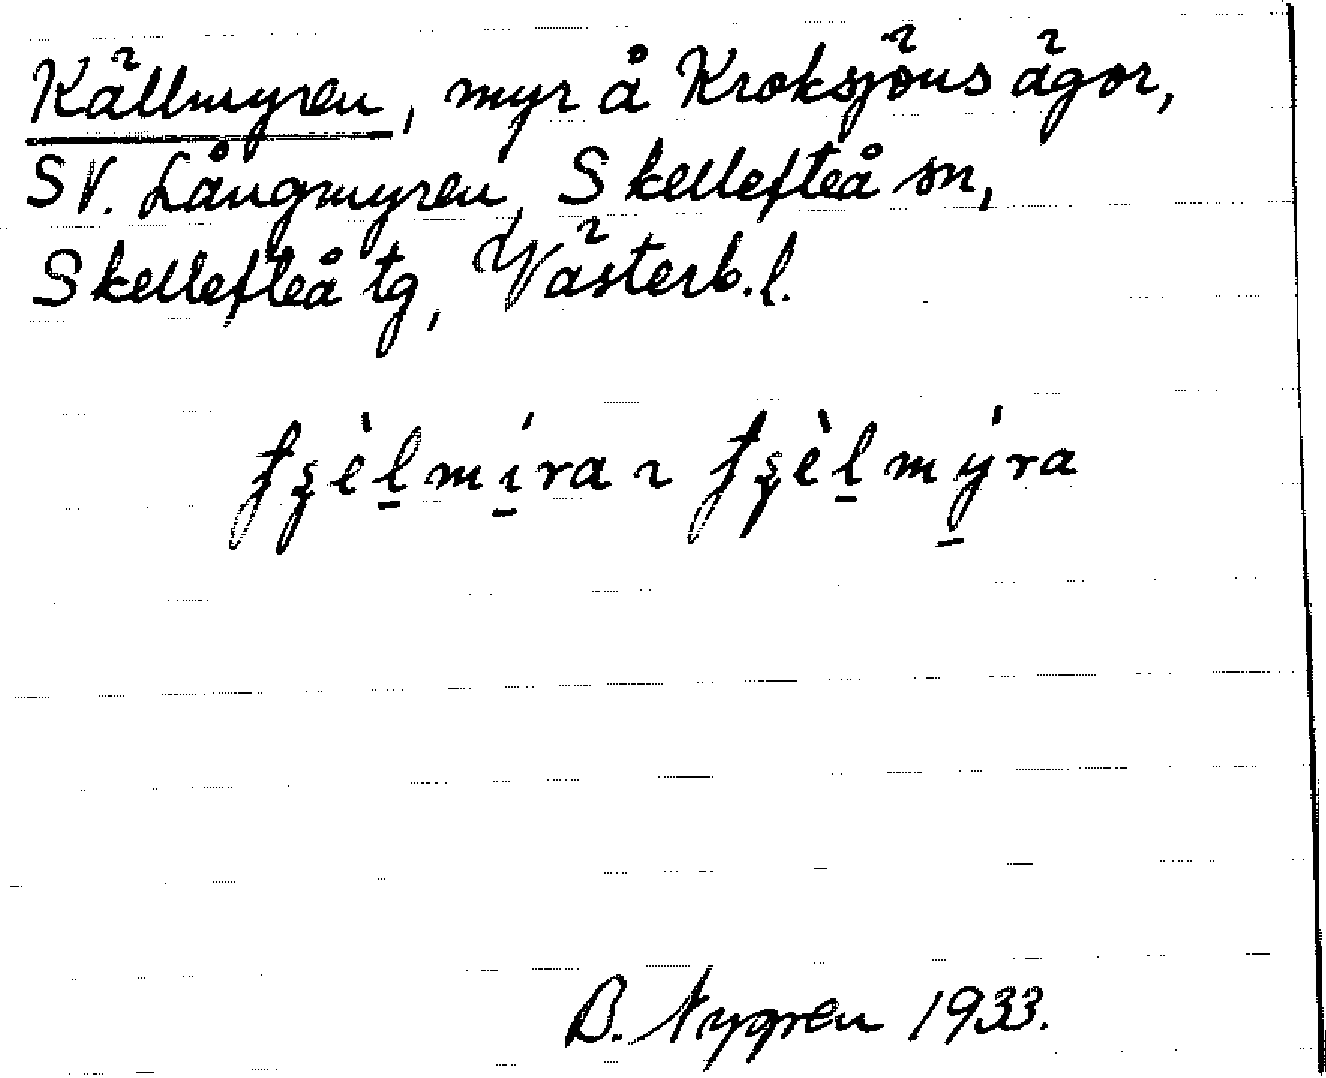 Källmyren, myr å Kroksjöns ägor,
SV. Långmyren, Skellefteå sn,
Skellefteå tg, Västerb.l.
ʃʂèl̠mí̠ra ~ ʃʂèl̠mý̠ra
B. Nygren 1933.